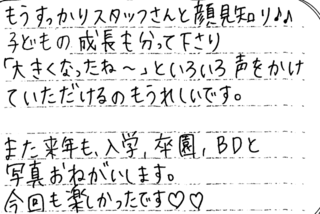 もうすっかりスタッフさんと顔見知り♪♪
子どもの成長も分って下さり
「大きくなったね〜」といろいろ声をかけ
ていただけるのもうれしいです。
また来年も、入学, 卒園, BDと
写真おねがいします。
今回も楽しかったです♡♡